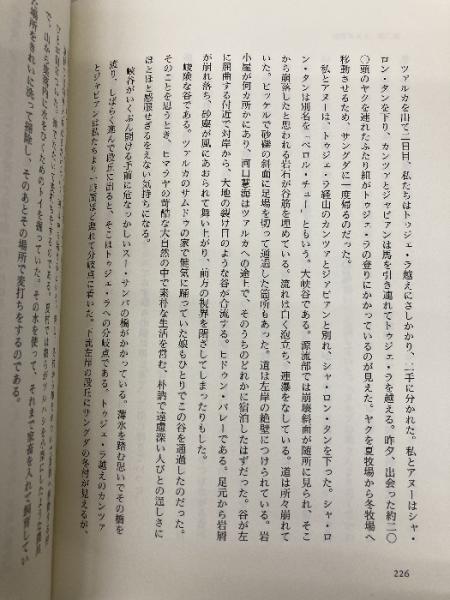 ツァルカを出て二日目、私たちはトゥジェ・ラ越えにさしかかり、二手に分かれた。私とアヌーはシャ・
ロン・タンを下り、カンツァとジャビアンは馬を引き連れてトゥジェ・ラを越える。昨夕、出会った約二〇
〇頭のヤクを連れたふたり組がトゥジェ・ラの登りにかかっているのが見えた。ヤクを夏牧場から冬牧場へ
移動させるため、サングダに一度帰るのだった。
私とアヌーは、トゥジェ・ラ経由のカンツァとジャビアンと別れ、シャ・ロン・タンを下った。シャ・ロ
ン・タンは別名を「ペロル・チュー」ともいう。大峡谷である。源流部では崩壊斜面が随所に見られ、そこ
から崩落したと思われる岩石が谷筋を埋めている。流れは白く泡立ち、連瀑をなしている。道は所々崩れて
いた。ピッケルで砂礫の斜面に足場を切って通過した箇所もあった。道は左岸の絶壁につけられている。岩
小屋が何カ所かにあり、河口慧海はツァルカへの途上で、そのうちのどれかに宿泊したはずだった。谷が左
に屈曲する付近で対岸から、大地の裂け目のような谷が合流する。ヒドゥン・バレーである。足元から岩屑
が崩れ落ち、砂塵が風にあおられて舞い上がり、前方の視界を閉ざしてしまったりもした。
峻険な谷である。ツァルカのサムドゥの家で健気に踊っていた娘もひとりでこの谷を通過したのだった。
そのことを思うとき、ヒマラヤの苛酷な大自然の中で素朴な生活を営む、朴訥で遠慮深い人びとの逞しさに
ほとほと感服せざるをえない気持ちになる。
峡谷がいくぶん開ける手前に危なっかしいスー・サンバの橋がかかっている。薄氷を踏む思いでその橋を
渡り、しばらく進んで段丘に出ると、そこはトゥジェ・ラへの分岐点である。トゥジェ・ラ越えのカンツァ
とジャビアンは私たちより一時間ほど遅れて分岐点に着いた。下流左岸の段丘にサングダの冬村が見えるが、
で、山から集落内に水をひくためのトイを掘っていた。その水を使って、それまで家畜を入れて飼育してい
た場所をきれいに洗って掃除し、そのあとその場所で麦打ちをするのである。
226